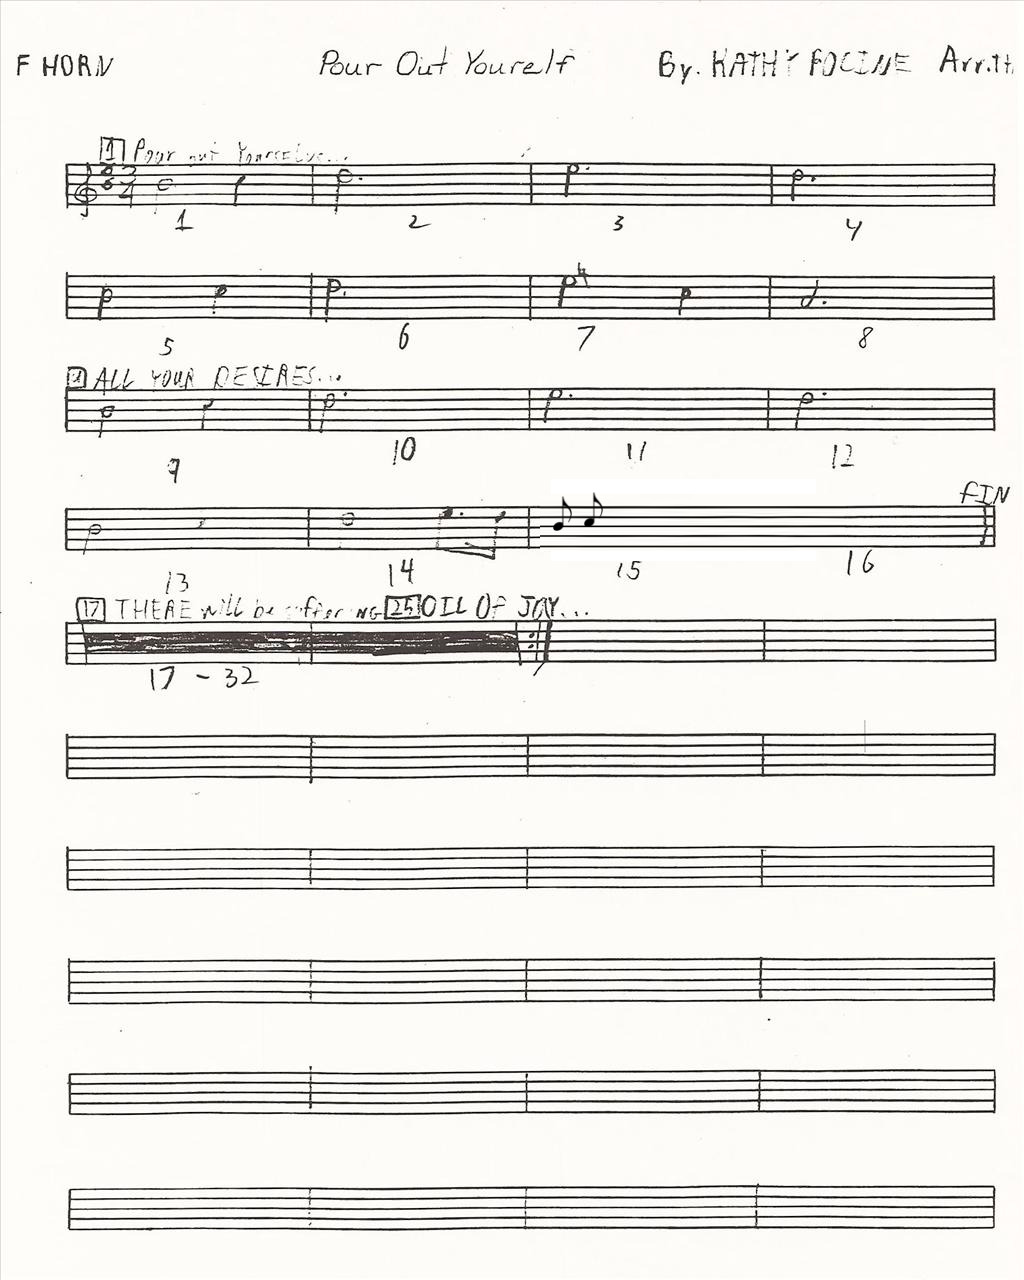 F HORN Pour Out Yourelf By. KATHY FOCINE Arr.
1 Pour out Yourselve...
1 2 3 4
5 6 7 8
9 ALL YOUR DESIRES...
9 10 11 12
FIN
13 14 15 16
17 THERE will be suffering 25 OIL Of JOY...
17 - 32